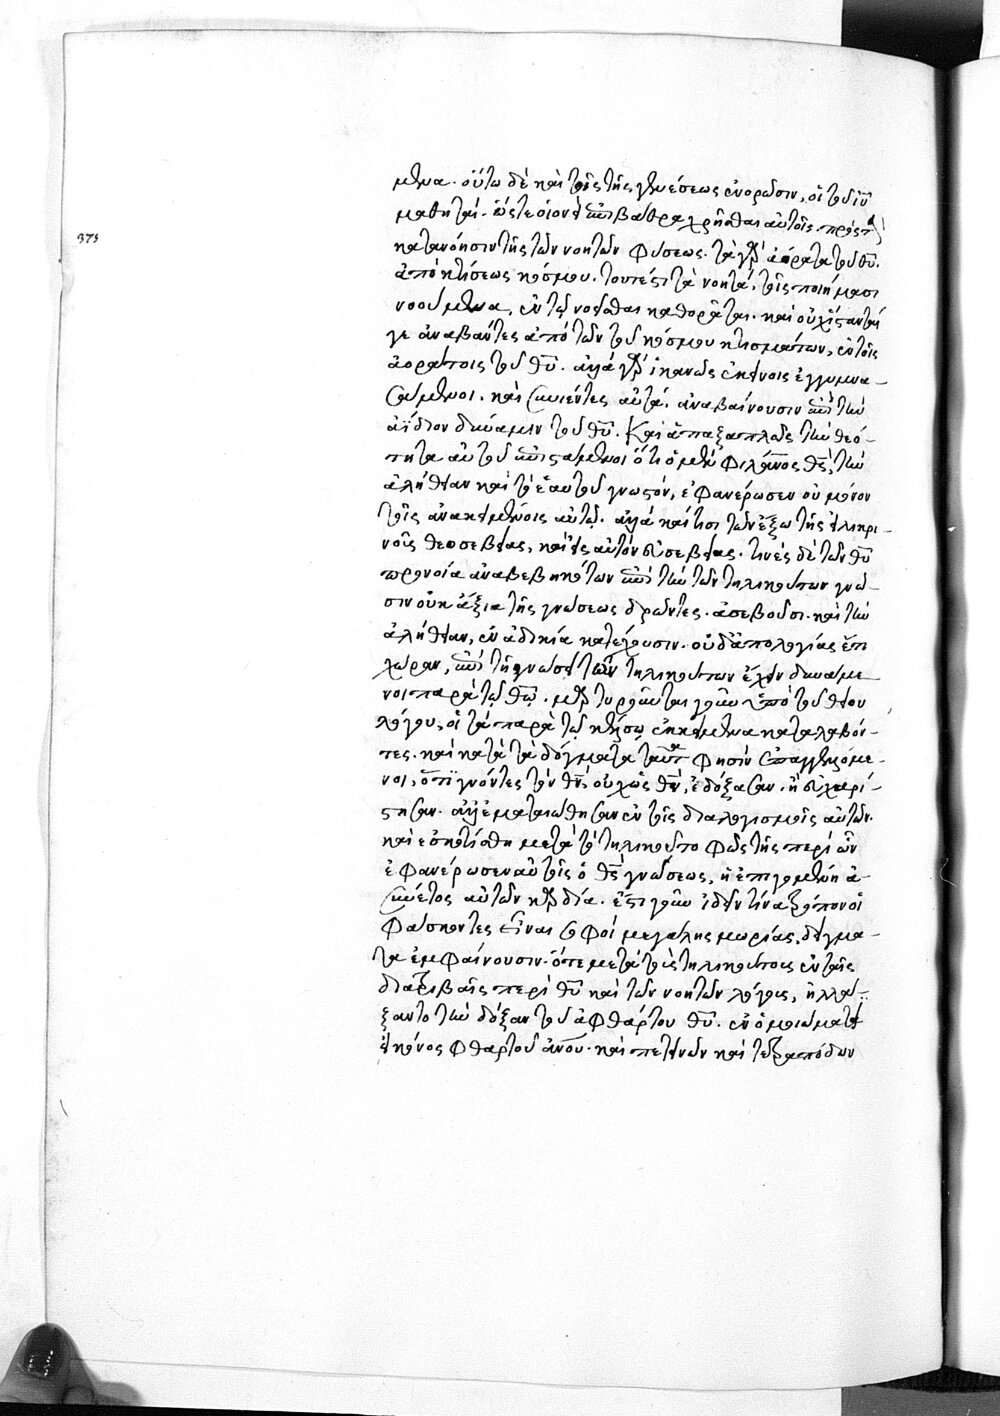 μενα. οὕτω δὲ καὶ τοῖς τῆς γενέσεως ἐνορῶσιν, οἱ τοῦ ἰῦ
μαθηταί. ὥστε οἱονεὶ ἐπιβάθρα χρῆσθαι αὐτοῖς πρὸς τὴν
κατανόησιν τῆς τῶν νοητῶν φύσεως. τὰ γὰρ ἀόρατα τοῦ θῦ.
ἀπὸ κτίσεως κόσμου. τουτέστι τὰ νοητά, τοῖς ποιήμασι
νοούμενα, ἐν τῷ νοεῖσθαι καθορᾶται. καὶ οὐχ ἵστανταί
γε ἀναβάντες ἀπὸ τῶν τοῦ κόσμου κτισμάτων, ἐν τοῖς
ἀοράτοις τοῦ θῦ. ἀλλὰ γὰρ ἱκανῶς ἐκείνοις ἐγγυμνα-
σάμενοι. καὶ συνιέντες αὐτά. ἀναβαίνουσιν ἐπὶ τὴν
ἀΐδιον δύναμιν τοῦ θῦ. καὶ ἁπαξαπλῶς τὴν θεό-
τητα αὐτοῦ ἐπιστάμενοι ὅτι ὁ μὲν φιλάνος θς, τὴν
ἀλήθειαν καὶ τὸ ἑαυτοῦ γνωστόν, ἐφανέρωσεν οὐ μόνον
τοῖς ἀνακειμένοις αὐτῷ. ἀλλὰ καί τισι τῶν ἔξω τῆς εἰλικρι-
νοῦς θεοσεβείας, καὶ τῆς εἰς αὐτὸν εὐσεβείας. τινὲς δὲ τῶν θῦ
προνοία ἀναβεβηκότων ἐπὶ τὴν τῶν τηλικούτων γνῶ-
σιν οὐκ ἄξια τῆς γνώσεως δρῶντες. ἀσεβοῦσι. καὶ τὴν
ἀλήθειαν, ἐν ἀδικία κατέχουσιν. οὐδ' ἀπολογίας ἔτι
χώραν, ἐπὶ τῇ γνώσει τῶν τηλικούτων ἔχειν δυνάμε-
νοι παρὰ τῷ θῶ. μαρτυροῦνται γοῦν ὑπὸ τοῦ θείου
λόγου, οἱ τὰ παρὰ τῷ κέλσῳ ἐκκείμενα καταλαβόν-
τες. καὶ κατὰ τὰ δόγματα ταῦτα φησὶν ἐπαγγελόμε-
νοι, ὅτι γνόντες τὸν θν, οὐχ ὡς θν, ἐδόξασαν. ἢ εὐχαρί-
στησαν. ἀλλ' ἐματαιώθησαν ἐν τοῖς διαλογισμοῖς αὐτῶν.
καὶ ἐσκοτίσθη μετὰ τὸ τηλικοῦτο φῶς τῆς περὶ ὧν
ἐφανέρωσεν αὐτοῖς ὁ θς γνώσεως, ἡ ἐπηρμένη ἀ-
σύνετος αὐτῶν καρδία. ἔστι γοῦν ἰδεῖν τίνα τρόπον οἱ
φάσκοντες εἶναι σοφοὶ μεγάλης μωρίας. δείγμα-
τα ἐμφαίνουσιν. ὅτε μετὰ τοὺς τηλικούτους ἐν ταῖς
διατριβαῖς περὶ θῦ καὶ τῶν νοητῶν λόγους, ἤλλα-
ξαν τὸ τὴν δόξαν τοῦ ἀφθάρτου θῦ. ἐν ὁμοιώματι
εἰκόνος φθαρτοῦ ἀνου. καὶ πετεινῶν καὶ τετραπόδων
373